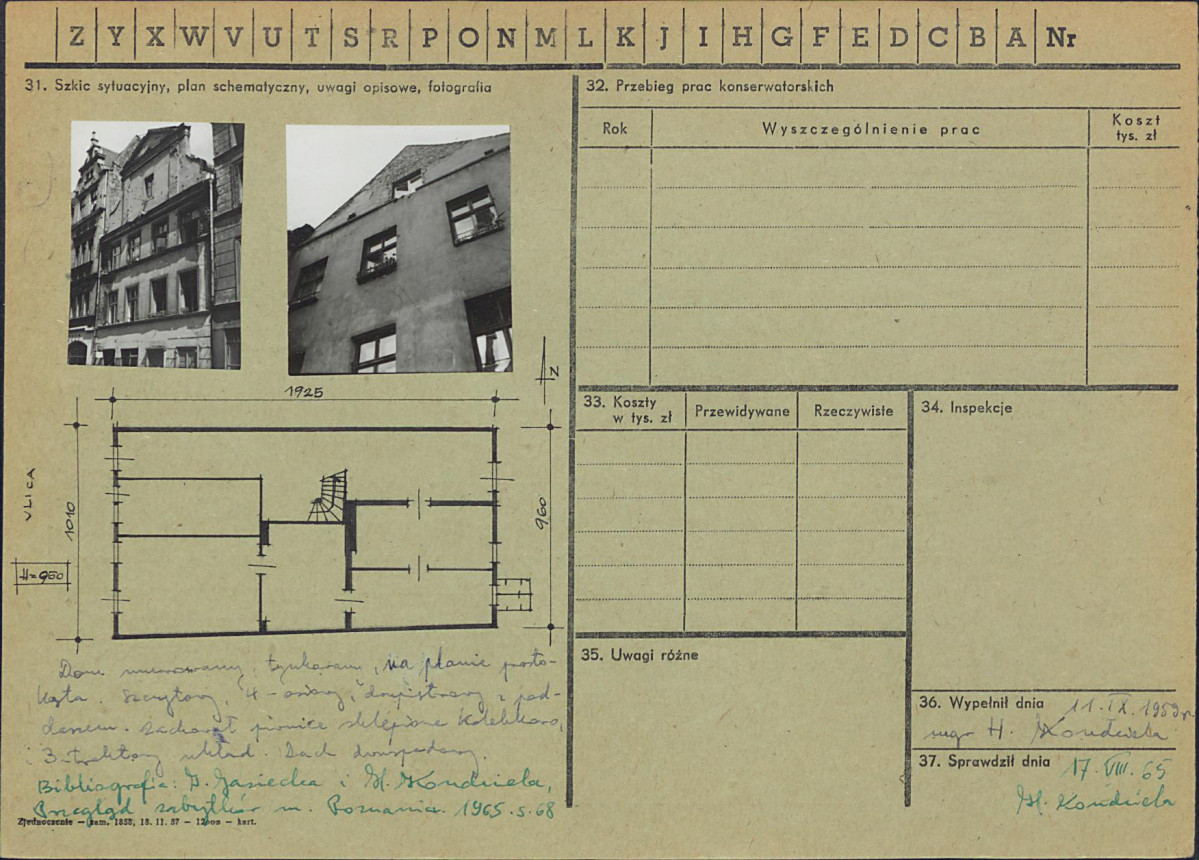 Z Y X W V U T S R P O N M L K J I H G F E D C B A Nr
31. Szkic sytuacyjny, plan schematyczny, uwagi opisowe, fotografia
1925
N
ULICA
1010
960
H=960
Dom murowany, tynkowany, na planie prosto-
kąta. Szczytowy, 4-osiowy, dwupiętrowy z pod-
daszem. Zachował piwnice sklepione kolebkowo,
3-traktowy układ. Dach dwuspadowy.
Bibliografia: D. Jasiecka i H. Kondziela,
Przegląd zabytków m. Poznania. 1965. s. 68
Zjednoczenie — zam. 1858, 18. 11. 57 — 12000 — kart.
32. Przebieg prac konserwatorskich
Rok Wyszczególnienie prac Koszt
tys. zł
33. Koszty
w tys. zł Przewidywane Rzeczywiste
34. Inspekcje
35. Uwagi różne
36. Wypełnił dnia 11. IX. 1959 r
mgr H. Kondziela
37. Sprawdził dnia 17. VIII. 65
H. Kondziela